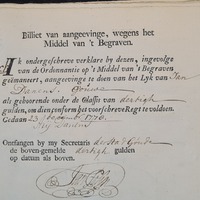 Billiet van aangeevinge, wegens het
Middel van 't Begraven.
Ik ondergeschreve verklare by dezen, ingevolge
van de Ordonnantie op 't Middel van 't Begraven
geëmaneert, aangeevinge te doen van het Lyk van Jan
als gehoorende onder de Classis van dertigh
gulden, om dien conform het voorschreve Regt te voldoen.
Gedaan 23 1770.
Ontfangen by my Secretaris der Stad Goude
de boven-gemelde dertigh gulden
op datum als boven.